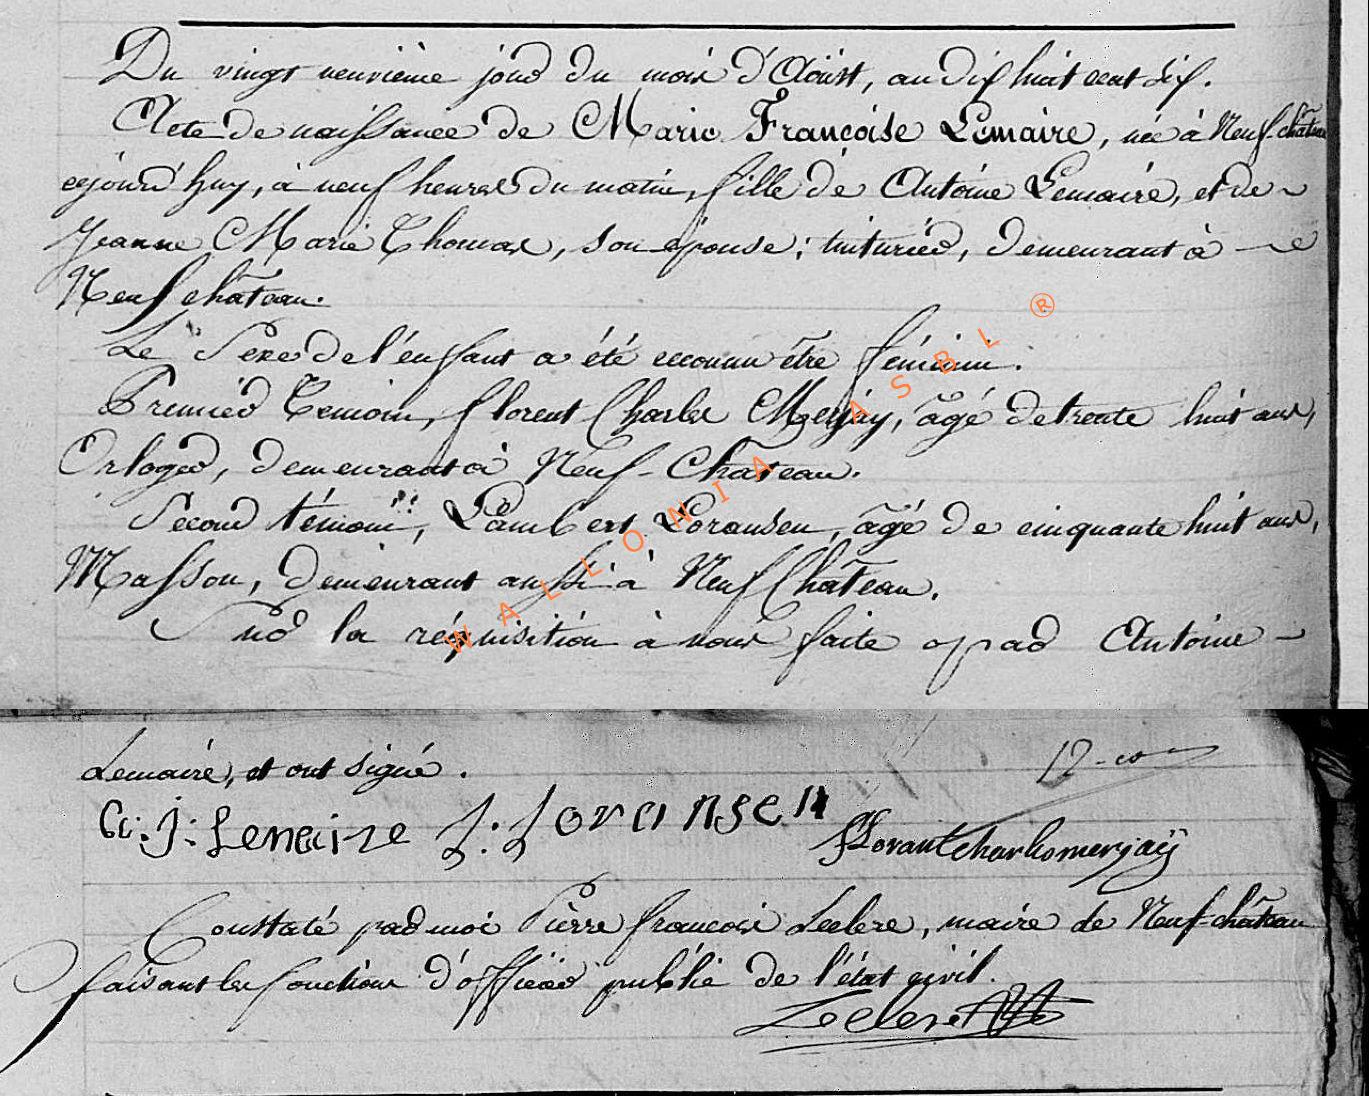 Du vingt neuvième jour du mois d'Aoüst, an dix huit cent six.
Acte de naissance de Marie Françoise Lemaire, née à Neufchâteau
cejourd'huy, à neuf heures du matin, fille de Antoine Lemaire, et de
Jeanne Marie Thomas, son épouse; tinturier, demeurant à
Neufchâteau.
Le Sexe de l'enfant a été reconnu être féminin.
Premier Temoin, florent Charles Merjay, âgé de trente huit ans,
Orloger, demeurant à Neuf-Château.
Second témoin, Lambert Loransen, âgé de cinquante huit ans,
Masson, demeurant aussi à Neufchâteau.
Sur la réquisition à nous faite par Antoine
WALLONIA ASBL ®
Lemaire, et ont signé.
J: Lemaire L: Loransen
Constaté par moi Pierre françois Leclere, maire de Neufchâteau
faisant les fonctions d'officier public de l'état civil.
Leclere